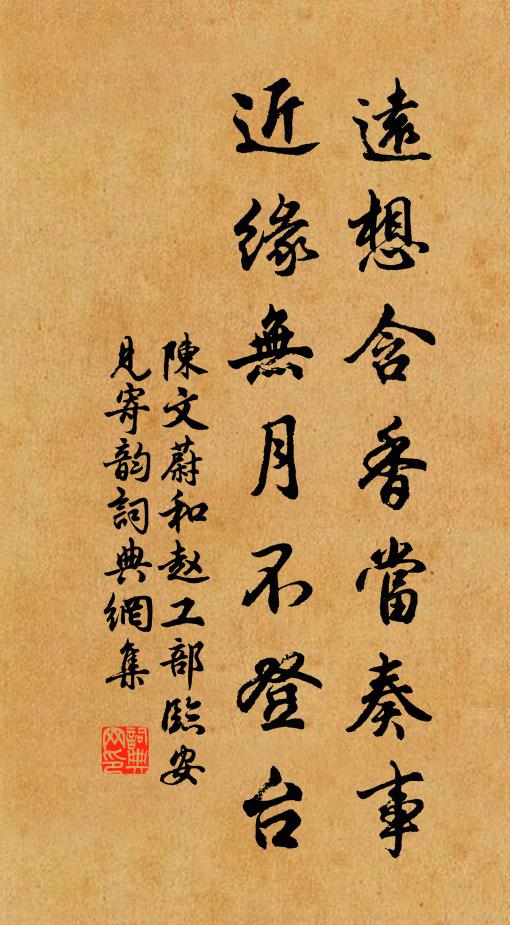 遠想含香當奏事
近緣無月不登台
陳文蔚和赵工部臨安
見寄韵詞典網集
詞典
网印